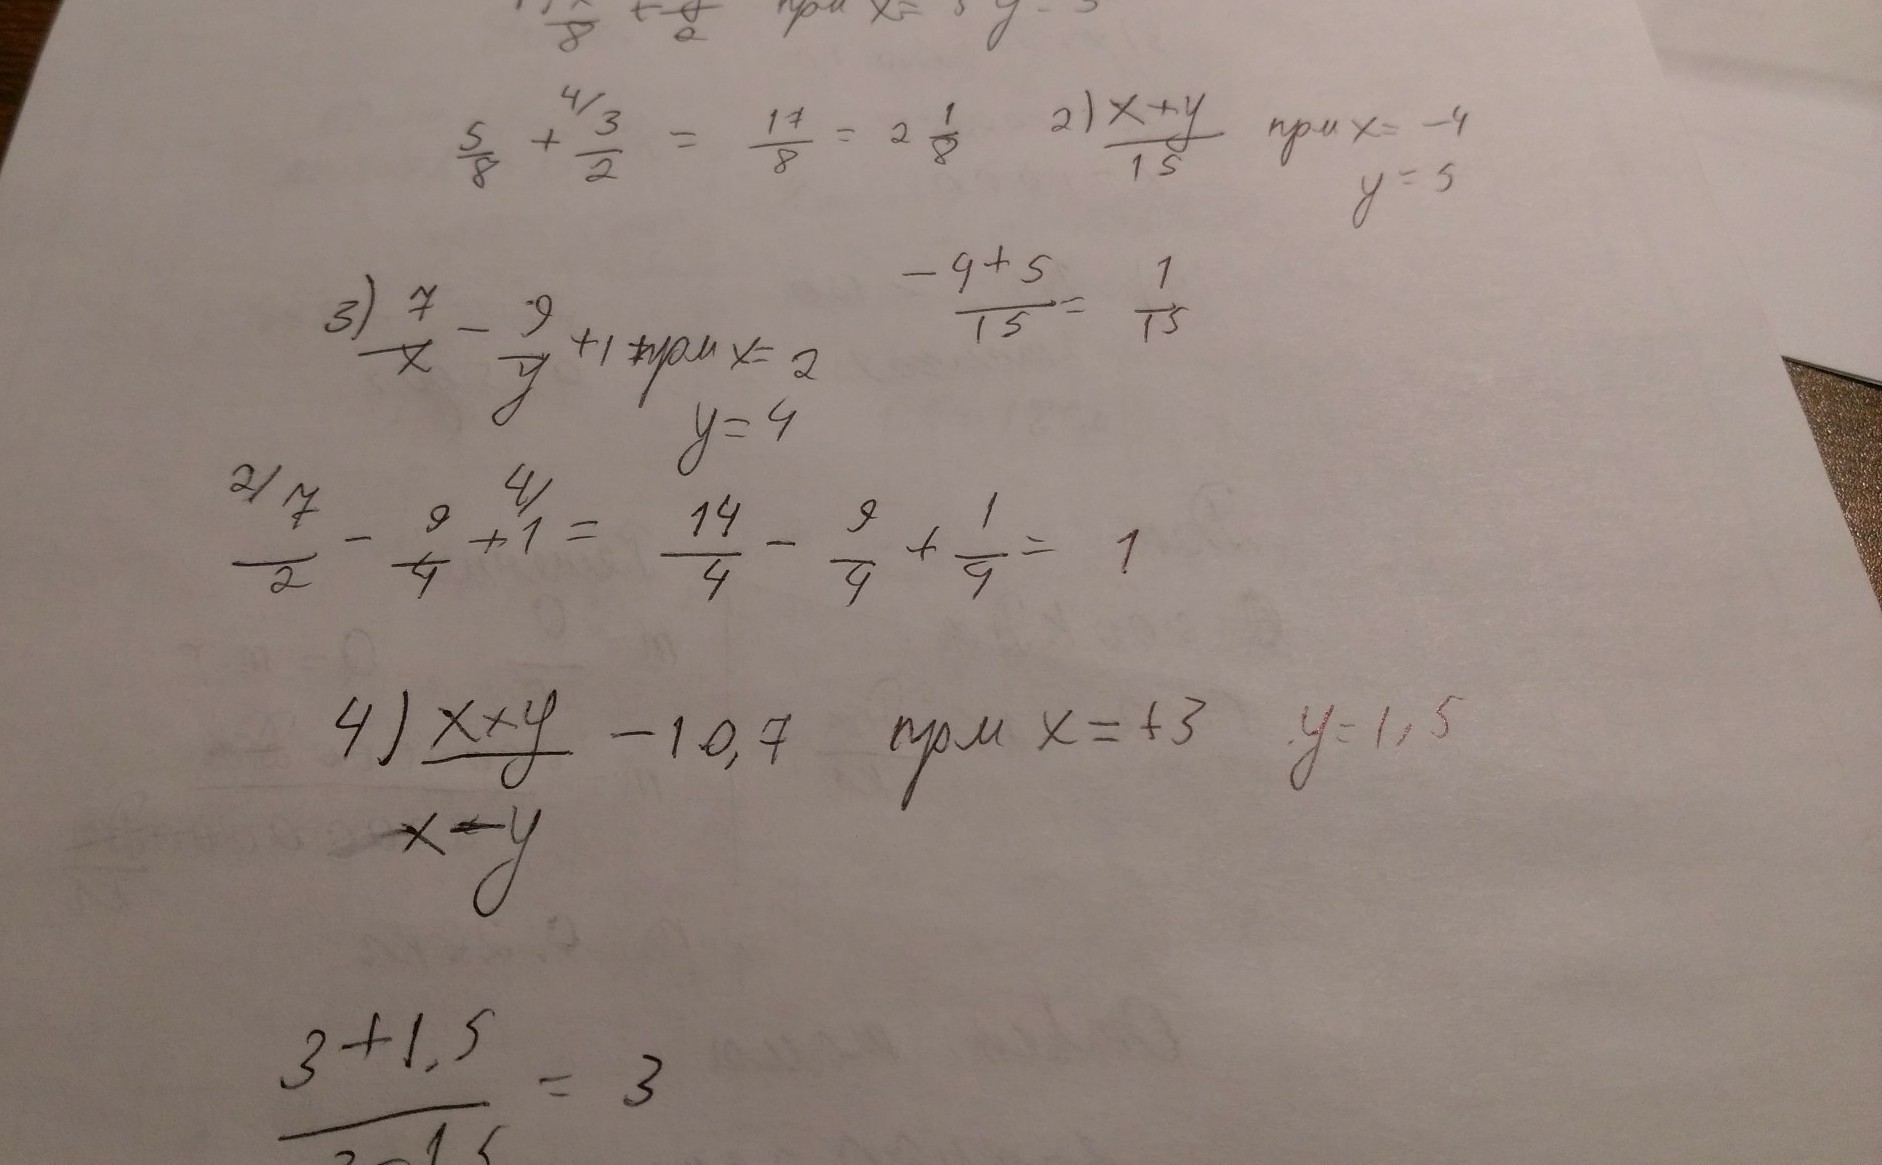 x/8 + y/2 при x= 5 y = 3
5/8 + 4/ 3/2 = 17/8 = 2 1/8
2) x+y/15 при x= -4
y = 5
-4+5/15 = 1/15
3) 7/x - 9/y +1 при x= 2
y = 4
2/ 7/2 - 9/4 + 4/ 1 = 14/4 - 9/4 + 1/4 = 1
4) x+y/x-y -10,7 при x = +3 y = 1,5
3+1,5/3-1,5 = 3